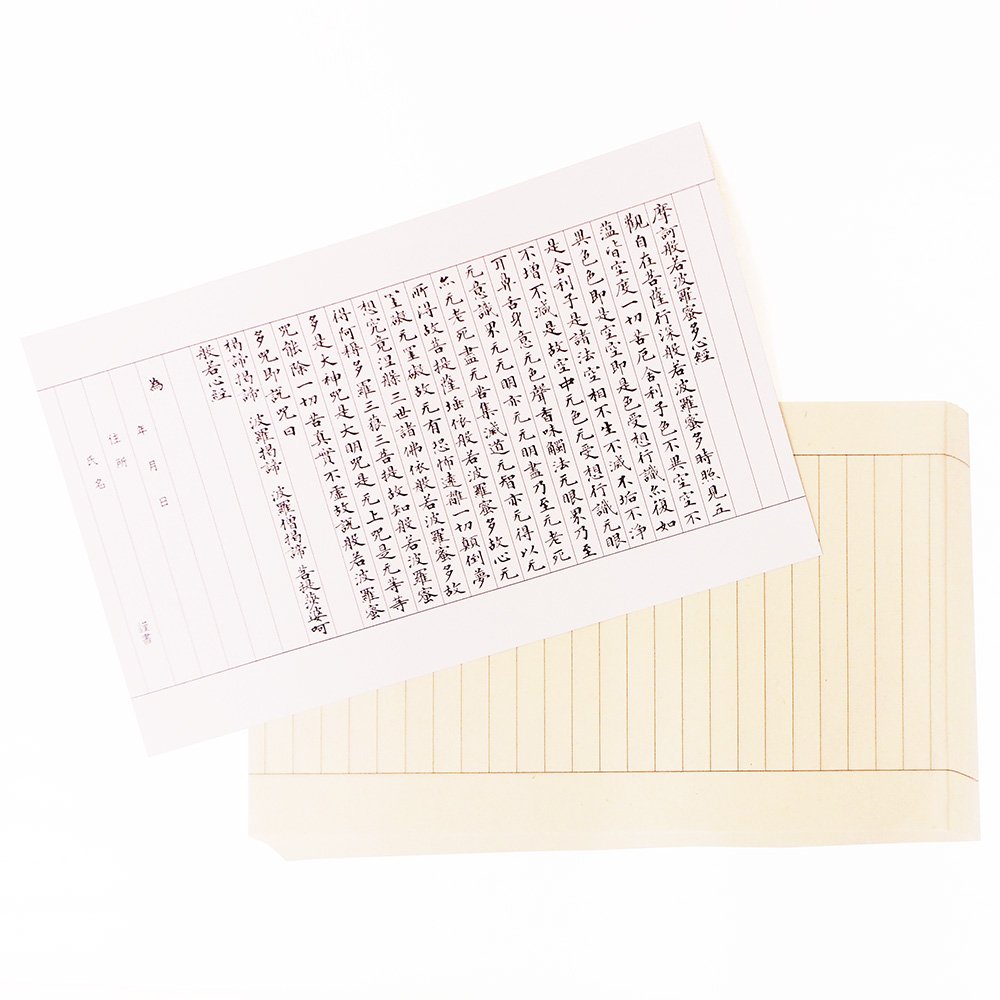 摩訶般若波羅蜜多心經
觀自在菩薩行深般若波羅蜜多時照見五
蘊皆空度一切苦厄舍利子色不異空空不
異色色即是空空即是色受想行識亦復如
是舍利子是諸法空相不生不滅不垢不淨
不增不減是故空中无色无受想行識无眼
耳鼻舌身意无色聲香味觸法无眼界乃至
无意識界无无明亦无无明盡乃至无老死
亦无老死盡无苦集滅道无智亦无得以无
所得故菩提薩埵依般若波羅蜜多故心无
罣礙无罣礙故无有恐怖遠離一切顛倒夢
想究竟涅槃三世諸佛依般若波羅蜜多故
得阿耨多羅三藐三菩提故知般若波羅蜜
多是大神咒是大明咒是无上咒是无等等
咒能除一切苦真實不虛故說般若波羅蜜
多咒即說咒曰
揭諦揭諦 波羅揭諦 波羅僧揭諦 菩提莎婆呵
般若心經
為
年 月 日
住所
氏名 謹書